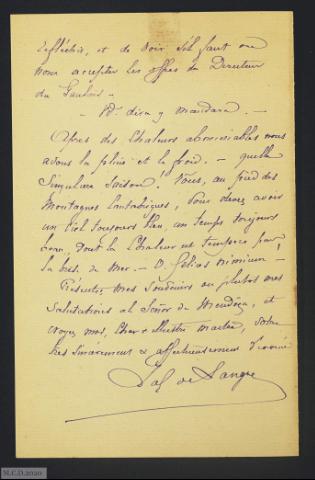 réfléchir, et de voir s'il faut ou
non accepter les offres du Directeur
du Gaulois –
Vd. dira y mandara. –
Après des chaleurs abominables nous
avons la pluie et le froid. – quelle
singulière saison. Vous, au pied des
Montagnes Cantabriques, vous devez avoir
un Ciel toujours bleu, un temps toujours
beau, dont la chaleur est tempérée par
la brise de mer. – O felius nimium –
Présentez mes souvenirs ou plutôt mes
salutations al Señor de Mendoza, et
croyez moi, cher & illustre maître, votre
très sincèrement & affectueusement dévoué